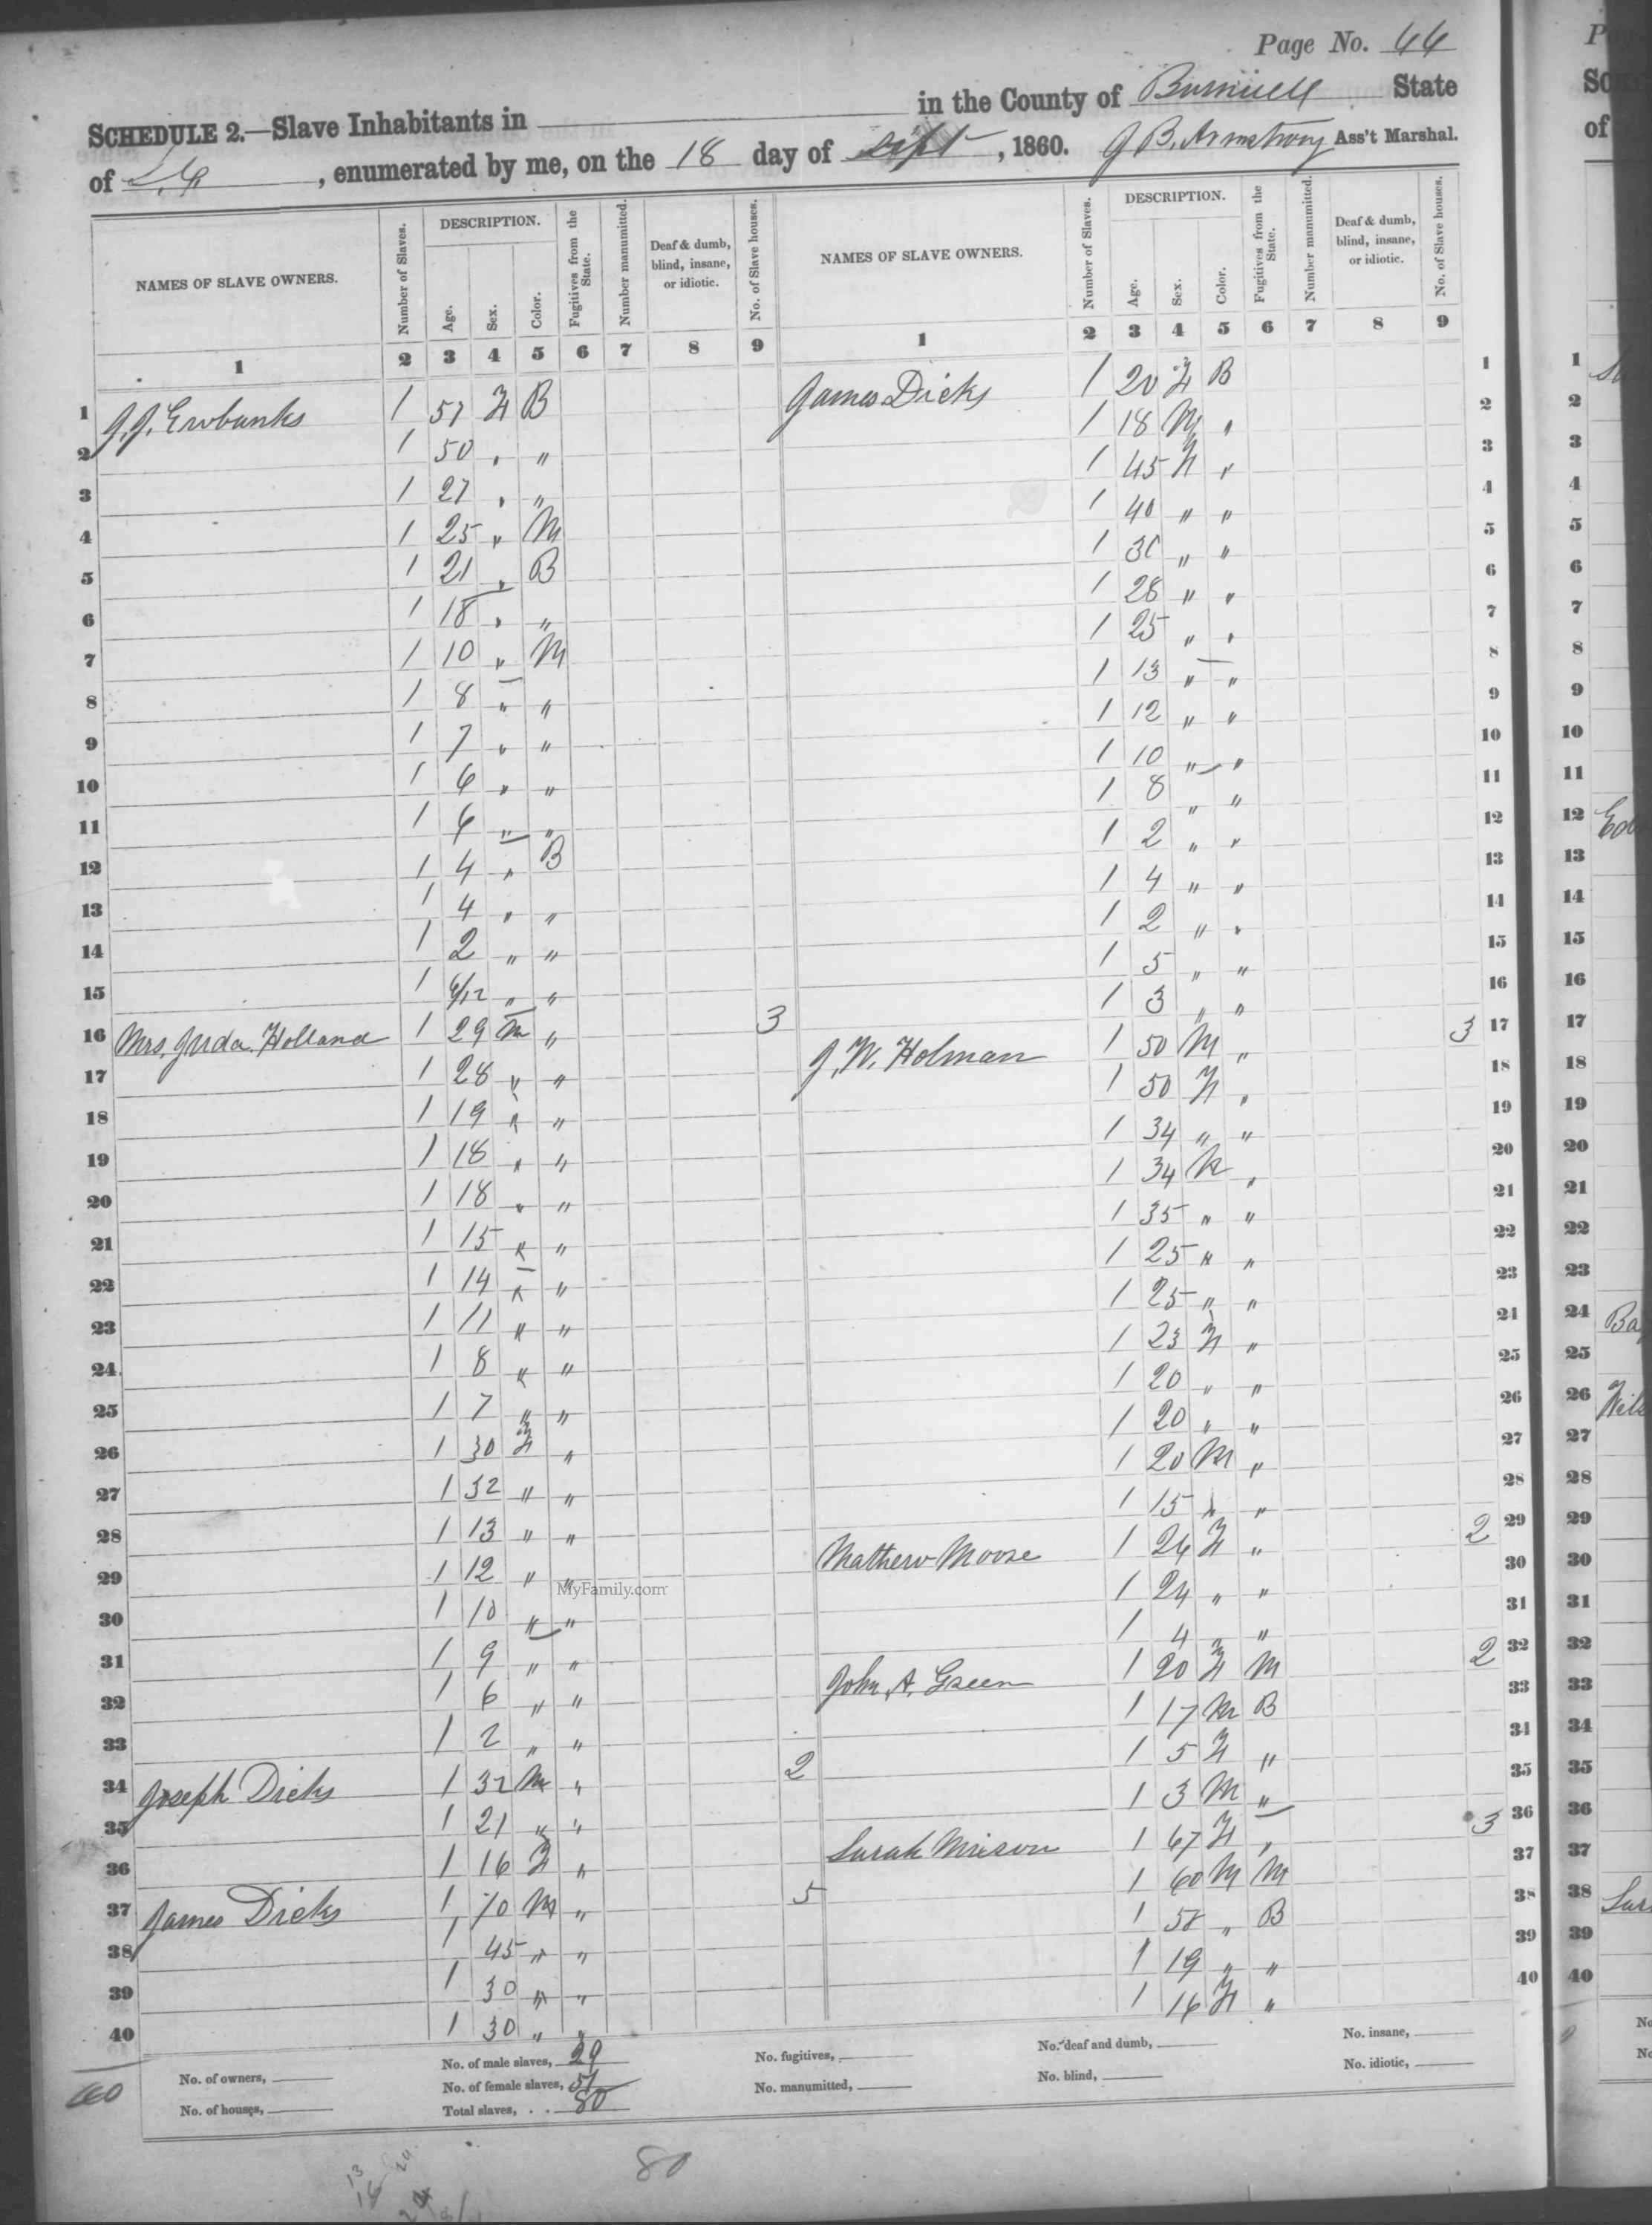 Page No. 44
SCHEDULE 2.—Slave Inhabitants in in the County of Barnwell State
of S.C , enumerated by me, on the 18 day of Sept , 1860. J B. Armstrong Ass't Marshal.
NAMES OF SLAVE OWNERS. Number of Slaves. DESCRIPTION. Age. Sex. Color. Fugitives from the State. Number manumitted. Deaf & dumb, blind, insane, or idiotic. No. of Slave houses.
1 2 3 4 5 6 7 8 9
1 J. J. Ewbanks 1 57 F B
2 1 50 " "
3 1 27 " "
4 1 25 " M
5 1 21 " B
6 1 18 " "
7 1 10 " M
8 1 8 " "
9 1 7 " "
10 1 6 " "
11 1 6 " "
12 1 4 " B
13 1 4 " "
14 1 2 " "
15 1 6/12 " "
16 Mrs. Juda Holland 1 29 M " 3
17 1 28 " "
18 1 19 " "
19 1 18 " "
20 1 18 " "
21 1 15 " "
22 1 14 " "
23 1 11 " "
24 1 8 " "
25 1 7 " "
26 1 30 F "
27 1 32 " "
28 1 13 " "
29 1 12 " "
MyFamily.com
30 1 10 " "
31 1 9 " "
32 1 6 " "
33 1 2 " "
34 Joseph Dicks 1 32 M " 2
35 1 21 " "
36 1 16 F "
37 James Dicks 1 70 M " 5
38 1 45 " "
39 1 30 " "
40 1 30 " "
NAMES OF SLAVE OWNERS. Number of Slaves. DESCRIPTION. Age. Sex. Color. Fugitives from the State. Number manumitted. Deaf & dumb, blind, insane, or idiotic. No. of Slave houses.
1 2 3 4 5 6 7 8 9
James Dicks 1 20 F B 1
1 18 M " 2
1 45 F " 3
1 40 " " 4
1 30 " " 5
1 28 " " 6
1 25 " " 7
1 13 " " 8
1 12 " " 9
1 10 " " 10
1 8 " " 11
1 2 " " 12
1 4 " " 13
1 2 " " 14
1 5 " " 15
1 3 " " 16
J. W. Holman 1 50 M " 3 17
1 50 F " 18
1 34 " " 19
1 34 M " 20
1 35 " " 21
1 25 " " 22
1 25 " " 23
1 23 F " 24
1 20 " " 25
1 20 " " 26
1 20 M " 27
1 15 " " 28
Mathew Moore 1 26 F " 2 29
1 24 " " 30
1 4 " " 31
John A. Green 1 20 F M 2 32
1 17 M B 33
1 5 F " 34
1 3 M " 35
Sarah 1 67 F " 3 36
1 60 M M 37
1 58 " B 38
1 19 " " 39
1 16 F " 40
No. of owners, No. of male slaves, 29 No. fugitives, No. deaf and dumb, No. insane,
No. of houses, No. of female slaves, 51 No. manumitted, No. blind, No. idiotic,
Total slaves, . . 80
40
80